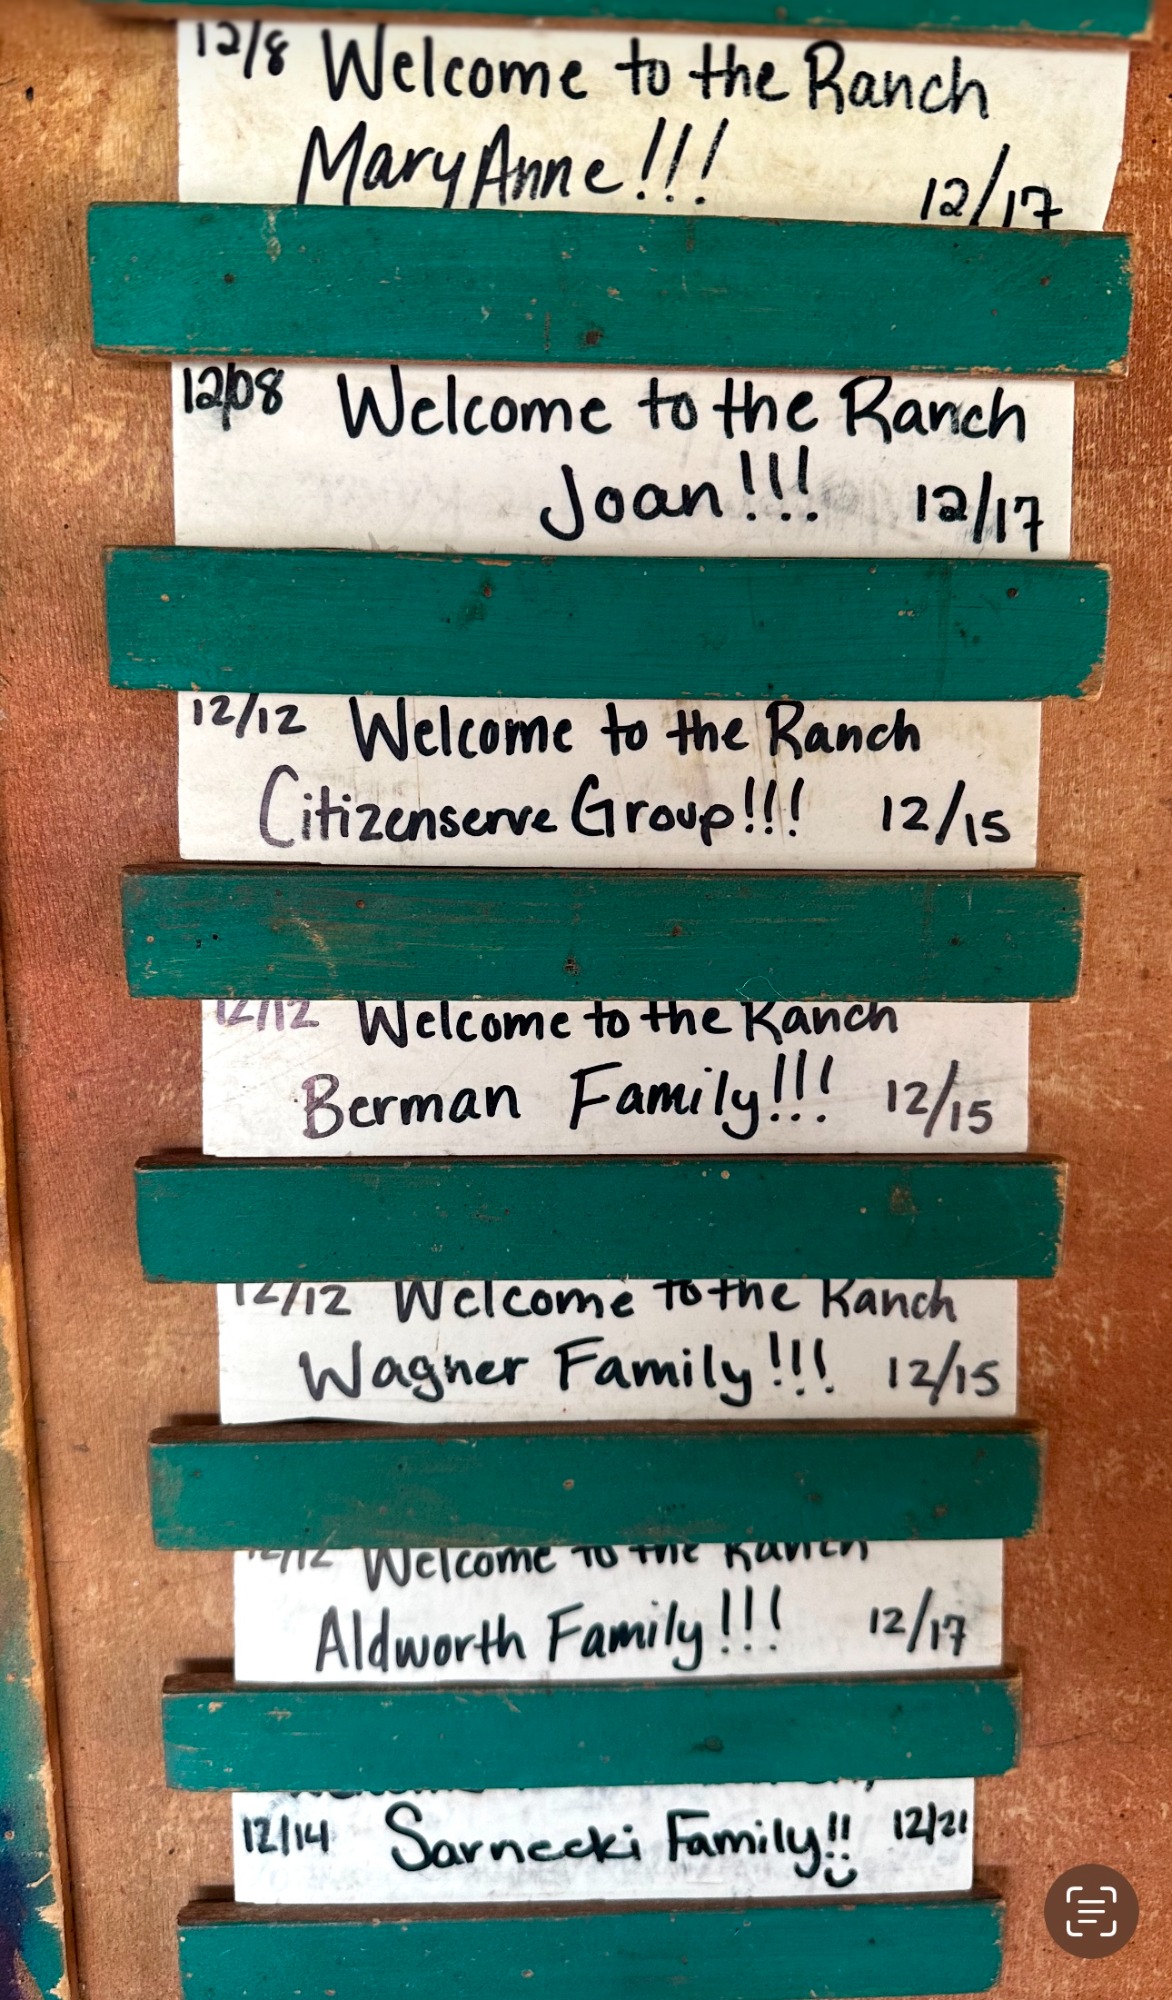 12/8 Welcome to the Ranch
MaryAnne!!! 12/17
12/08 Welcome to the Ranch
Joan!!! 12/17
12/12 Welcome to the Ranch
Citizenserve Group!!! 12/15
12/12 Welcome to the Ranch
Berman Family!!! 12/15
12/12 Welcome to the Ranch
Wagner Family!!! 12/15
12/12 Welcome to the Ranch
Aldworth Family!!! 12/17
12/14 Sarnecki Family!! 12/21